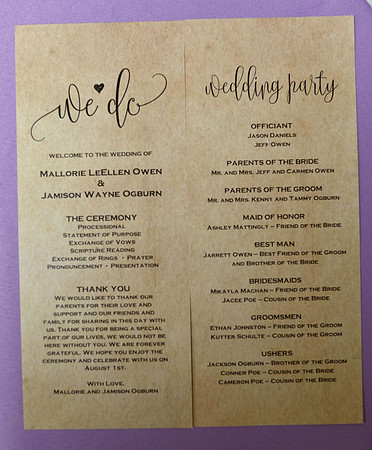 we do
WELCOME TO THE WEDDING OF
MALLORIE LEELLEN OWEN
&
JAMISON WAYNE OGBURN
THE CEREMONY
PROCESSIONAL
STATEMENT OF PURPOSE
EXCHANGE OF VOWS
SCRIPTURE READING
EXCHANGE OF RINGS • PRAYER
PRONOUNCEMENT • PRESENTATION
THANK YOU
WE WOULD LIKE TO THANK OUR
PARENTS FOR THEIR LOVE AND
SUPPORT AND OUR FRIENDS AND
FAMILY FOR SHARING IN THIS DAY WITH
US. THANK YOU FOR BEING A SPECIAL
PART OF OUR LIVES, WE WOULD NOT BE
HERE WITHOUT YOU. WE ARE FOREVER
GRATEFUL. WE HOPE YOU ENJOY THE
CEREMONY AND CELEBRATE WITH US ON
AUGUST 1ST.
WITH LOVE,
MALLORIE AND JAMISON OGBURN
wedding party
OFFICIANT
JASON DANIELS
JEFF OWEN
PARENTS OF THE BRIDE
MR. AND MRS. JEFF AND CARMEN OWEN
PARENTS OF THE GROOM
MR. AND MRS. KENNY AND TAMMY OGBURN
MAID OF HONOR
ASHLEY MATTINGLY – FRIEND OF THE BRIDE
BEST MAN
JARRETT OWEN – BEST FRIEND OF THE GROOM
AND BROTHER OF THE BRIDE
BRIDESMAIDS
MIKAYLA MACHAN – FRIEND OF THE BRIDE
JACEE POE – COUSIN OF THE BRIDE
GROOMSMEN
ETHAN JOHNSTON – FRIEND OF THE GROOM
KUTTER SCHULTE – COUSIN OF THE GROOM
USHERS
JACKSON OGBURN – BROTHER OF THE GROOM
CONNER POE – COUSIN OF THE BRIDE
CAMERON POE – COUSIN OF THE BRIDE